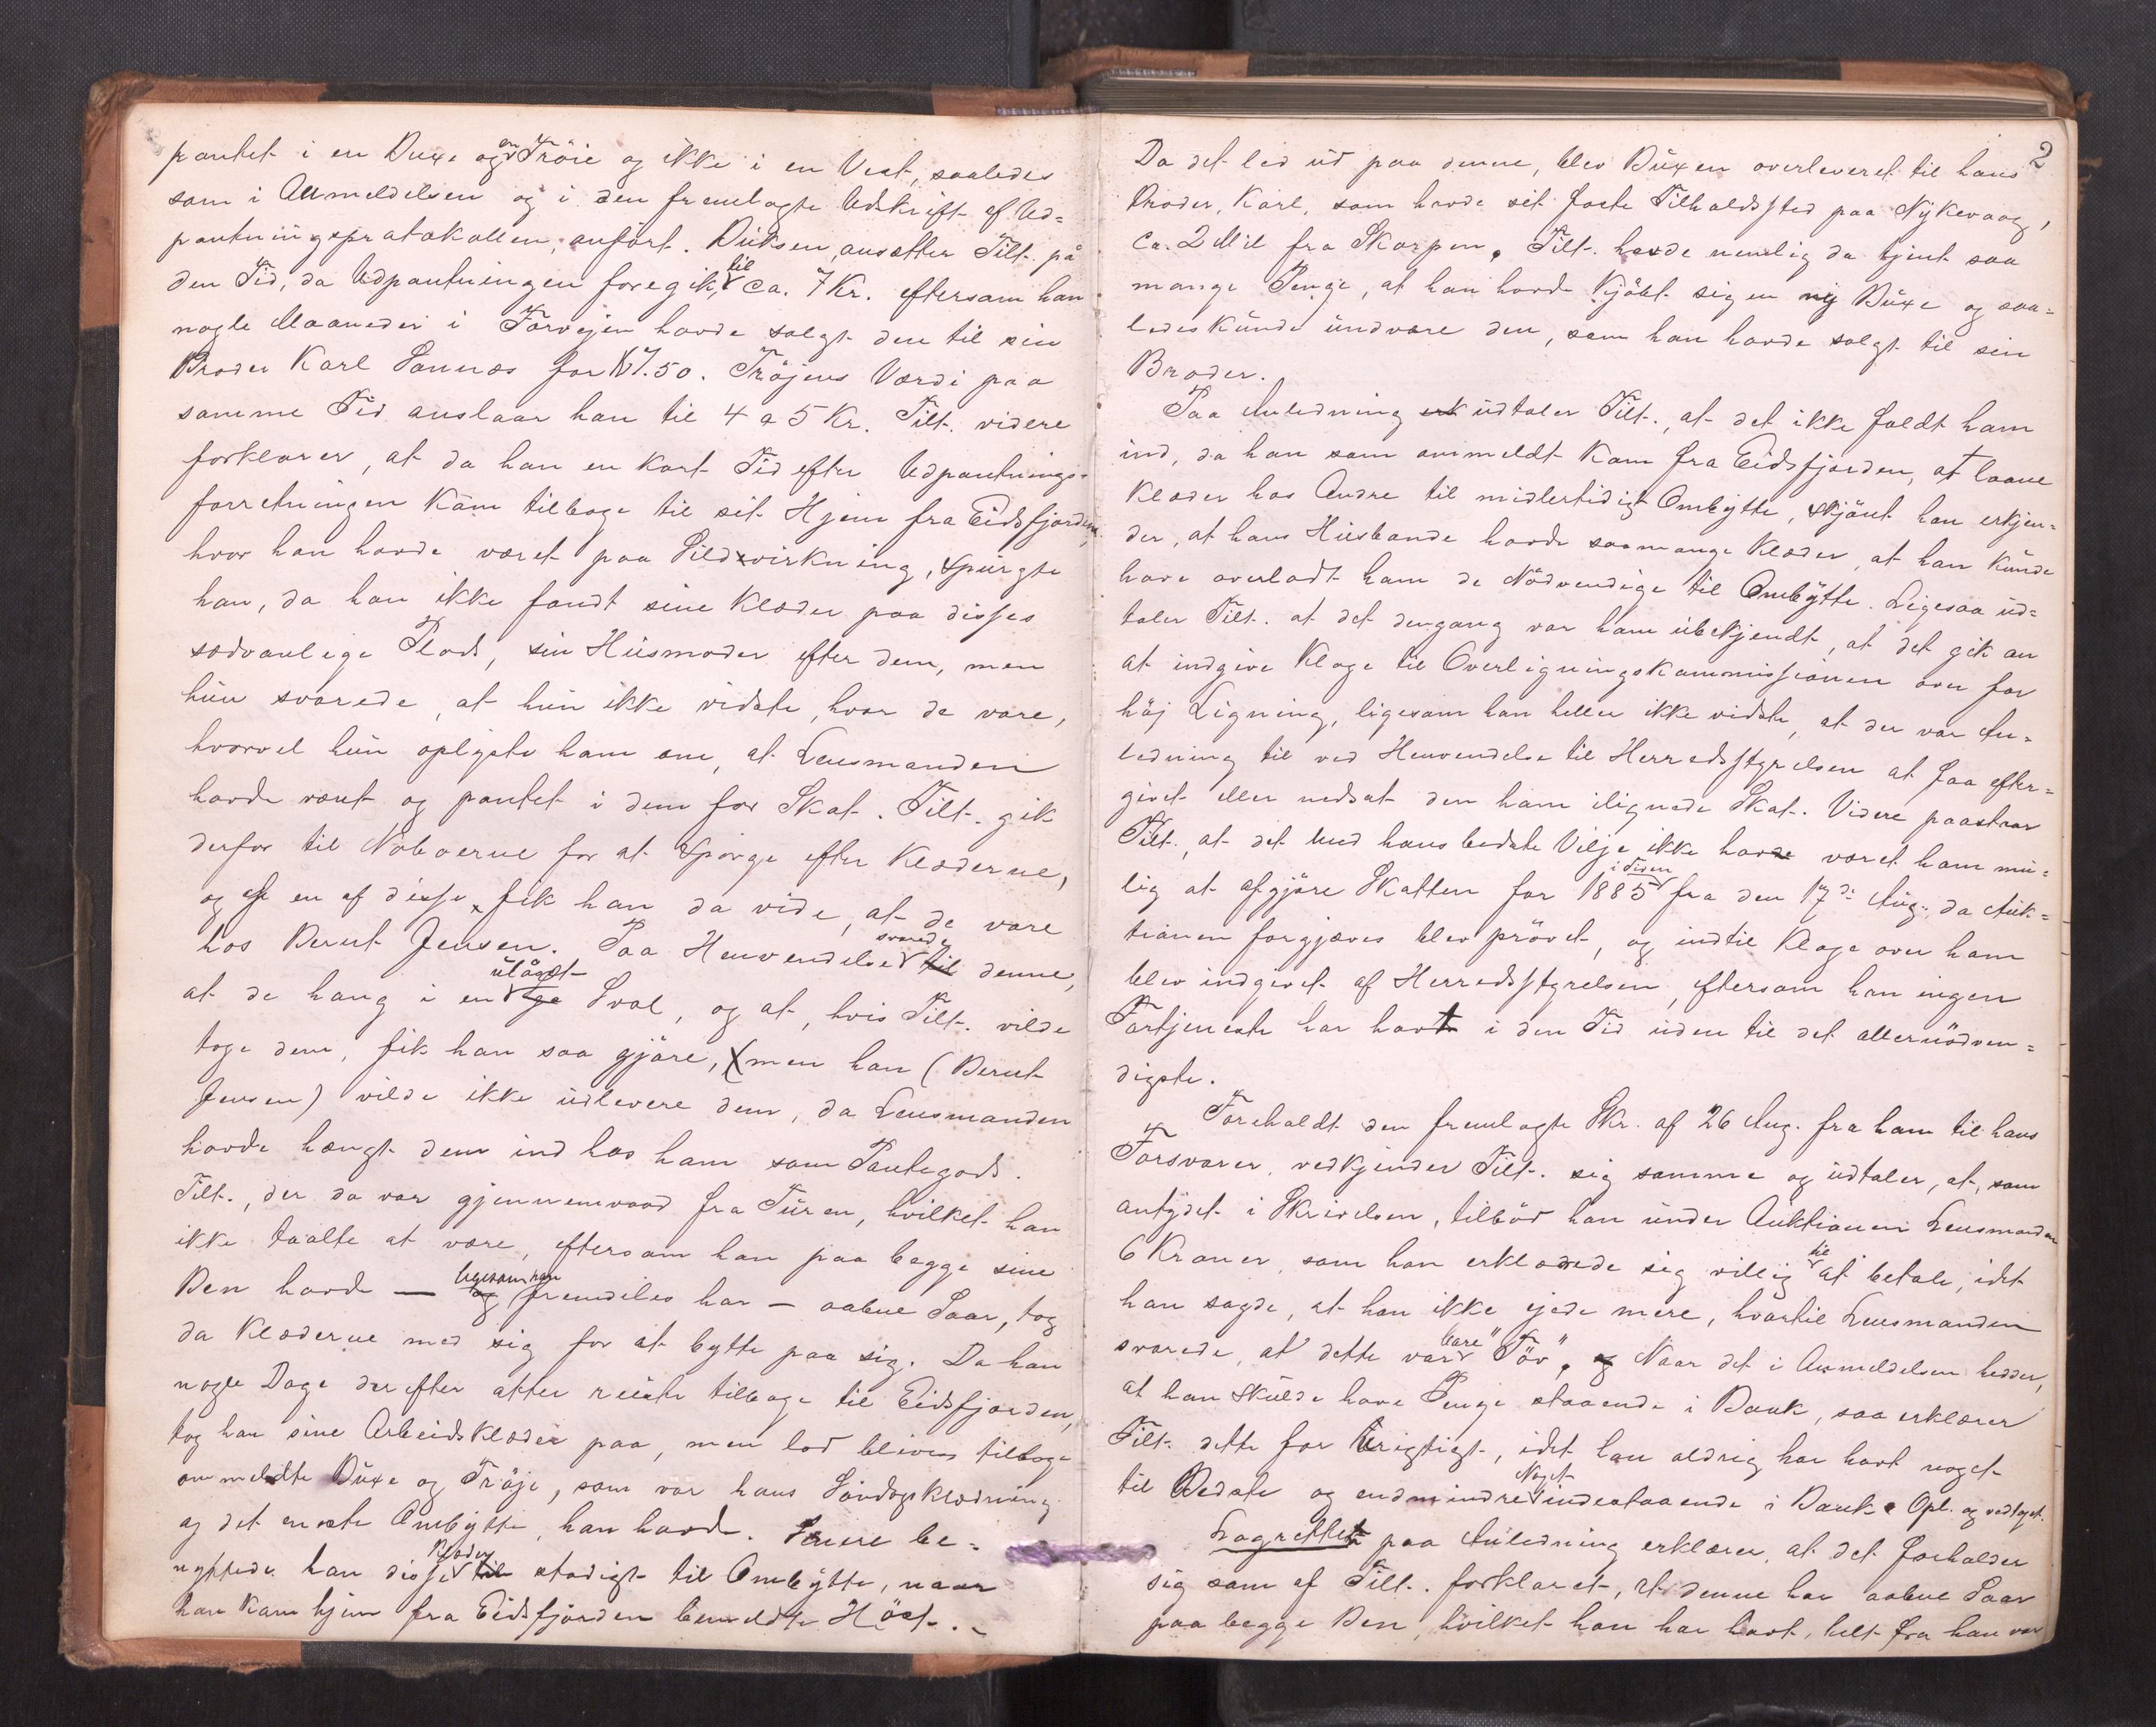 pantet i en Buxe og en Trøie og ikke i en Vest, saaledes
som i Anmeldelsen og i den fremlagte Udskrift af Ud=
pantningsprotokollen, anført. Buksen, ansætter Tilt. på
den Tid, da Udpantningen foregik, til ca. 7 Kr. eftersom han
nogle Maaneder i Forvejen havde solgt den til sin
Broder Karl Sannes for K 7.50. Trøjens Værdi paa
samme Tid anslaar han til 4 a 5 Kr. Tilt. videre
forklarer, at da han en kort Tid efter Udpantnings=
forretningen kom tilbage til sit Hjem fra Eidsfjorden,
hvor han havde været paa Sildvirkning, spurgte
han, da han ikke fandt sine Klæder paa disses
sædvanlige Plads, sin Husmoder efter dem, men
hun svarede, at hun ikke vidste, hvor de vare,
hvorvel hun oplyste ham om, at Lensmanden
havde været og pantet i dem for Skat. Tilt. gik
derfor til Naboerne for at spørge efter Klæderne,
og af en af disse fik han da vide, at de vare
hos Bernt Jensen. Paa Henvendelse svarede til denne,
at de hang i en ulåset Sval, og at, hvis Tilt. vilde
tage dem, fik han saa gjøre, (men han (Bernt
Jensen) vilde ikke udlevere dem, da Lensmanden
havde hængt dem ind hos ham som Pantegods.
Tilt., der da var gjennemvaad fra Turen, hvilket han
ikke taalte at være, eftersom han paa begge sine
Ben havde — og ligesom han fremdeles har — aabne Saar, tog
da Klæderne med sig for at bytte paa sig. Da han
nogle Dage derefter atter reiste tilbage til Eidsfjorden,
tog han sine Arbeidsklæder paa, men lod blive tilbage
ommeldte Buxe og Trøje, som var hans Søndagsklædning
og det eneste Ombytte, han havde. Senere be=
nyttede han disse Klæder til stadigt til Ombytte, naar
han kom hjem fra Eidsfjorden bemeldte Høst. –
2
Da det led ud paa denne, blev Buxen overleveret til hans
Broder, Karl, som havde sit faste Tilholdssted paa Nykvaag,
ca. 2 Mil fra Skarpen. Tilt. havde nemlig da tjent saa
mange Penge, at han havde kjøbt sig en ny Buxe og saa=
ledes kunde undvære den, som han havde solgt til sin
Broder.
Paa Anledning udtaler Tilt., at det ikke faldt ham
ind, da han som ommeldt kom fra Eidsfjorden, at laane
Klæder hos Andre til midlertidigt Ombytte, skjønt han erkjen=
der, at hans Husbande havde saamange Klæder, at han kunde
have overladt ham de Nødvendige til Ombytte. Ligesaa ud=
taler Tilt. at det dengang var ham ubekjendt, at det gik an
at indgive Klage til Overligningskommissionen over for
høj Ligning, ligesom han heller ikke vidste, at der var An=
ledning til ved Henvendelse til Herredsstyrelsen at faa efter=
givet eller nedsat den ham ilignede Skat. Videre paastaar
Tilt., at det med hans bedste Vilje ikke havde været ham mu=
lig at afgjøre Skatten for 1885 i Tiden fra den 17de Aug., da Auk=
tionen forgjæves blev prøvet, og indtil Klage over ham
blev indgivet af Herredsstyrelsen, eftersom han ingen
Fortjeneste har havt i den Tid uden til det allernødven=
digste.
Foreholdt den fremlagte Skr. af 26 Aug. fra ham til hans
Forsvarer, vedkjender Tilt. sig samme og udtaler, at, som
antydet i Skrivelsen, tilbød han under Auktionen Lensmanden
6 Kroner, som han erklærede sig villig til at betale, idet
han sagde, at han ikke ejede mere, hvortil Lensmanden
svarede, at dette var bare "Tøv". Naar det i Anmeldelsen hedder,
at han skulde have Penge staaende i Bank, saa erklærer
Tilt. dette for urigtigt, idet han aldrig har havt noget
til Bedste og endmindre Noget indestaaende i Bank. Opl. og vedtaget.
Lagrettet paa Anledning erklærer, at det forholder
sig som af Tilt. forklaret, at denne har aabne Saar
paa begge Ben, hvilket han har havt, helt fra han var